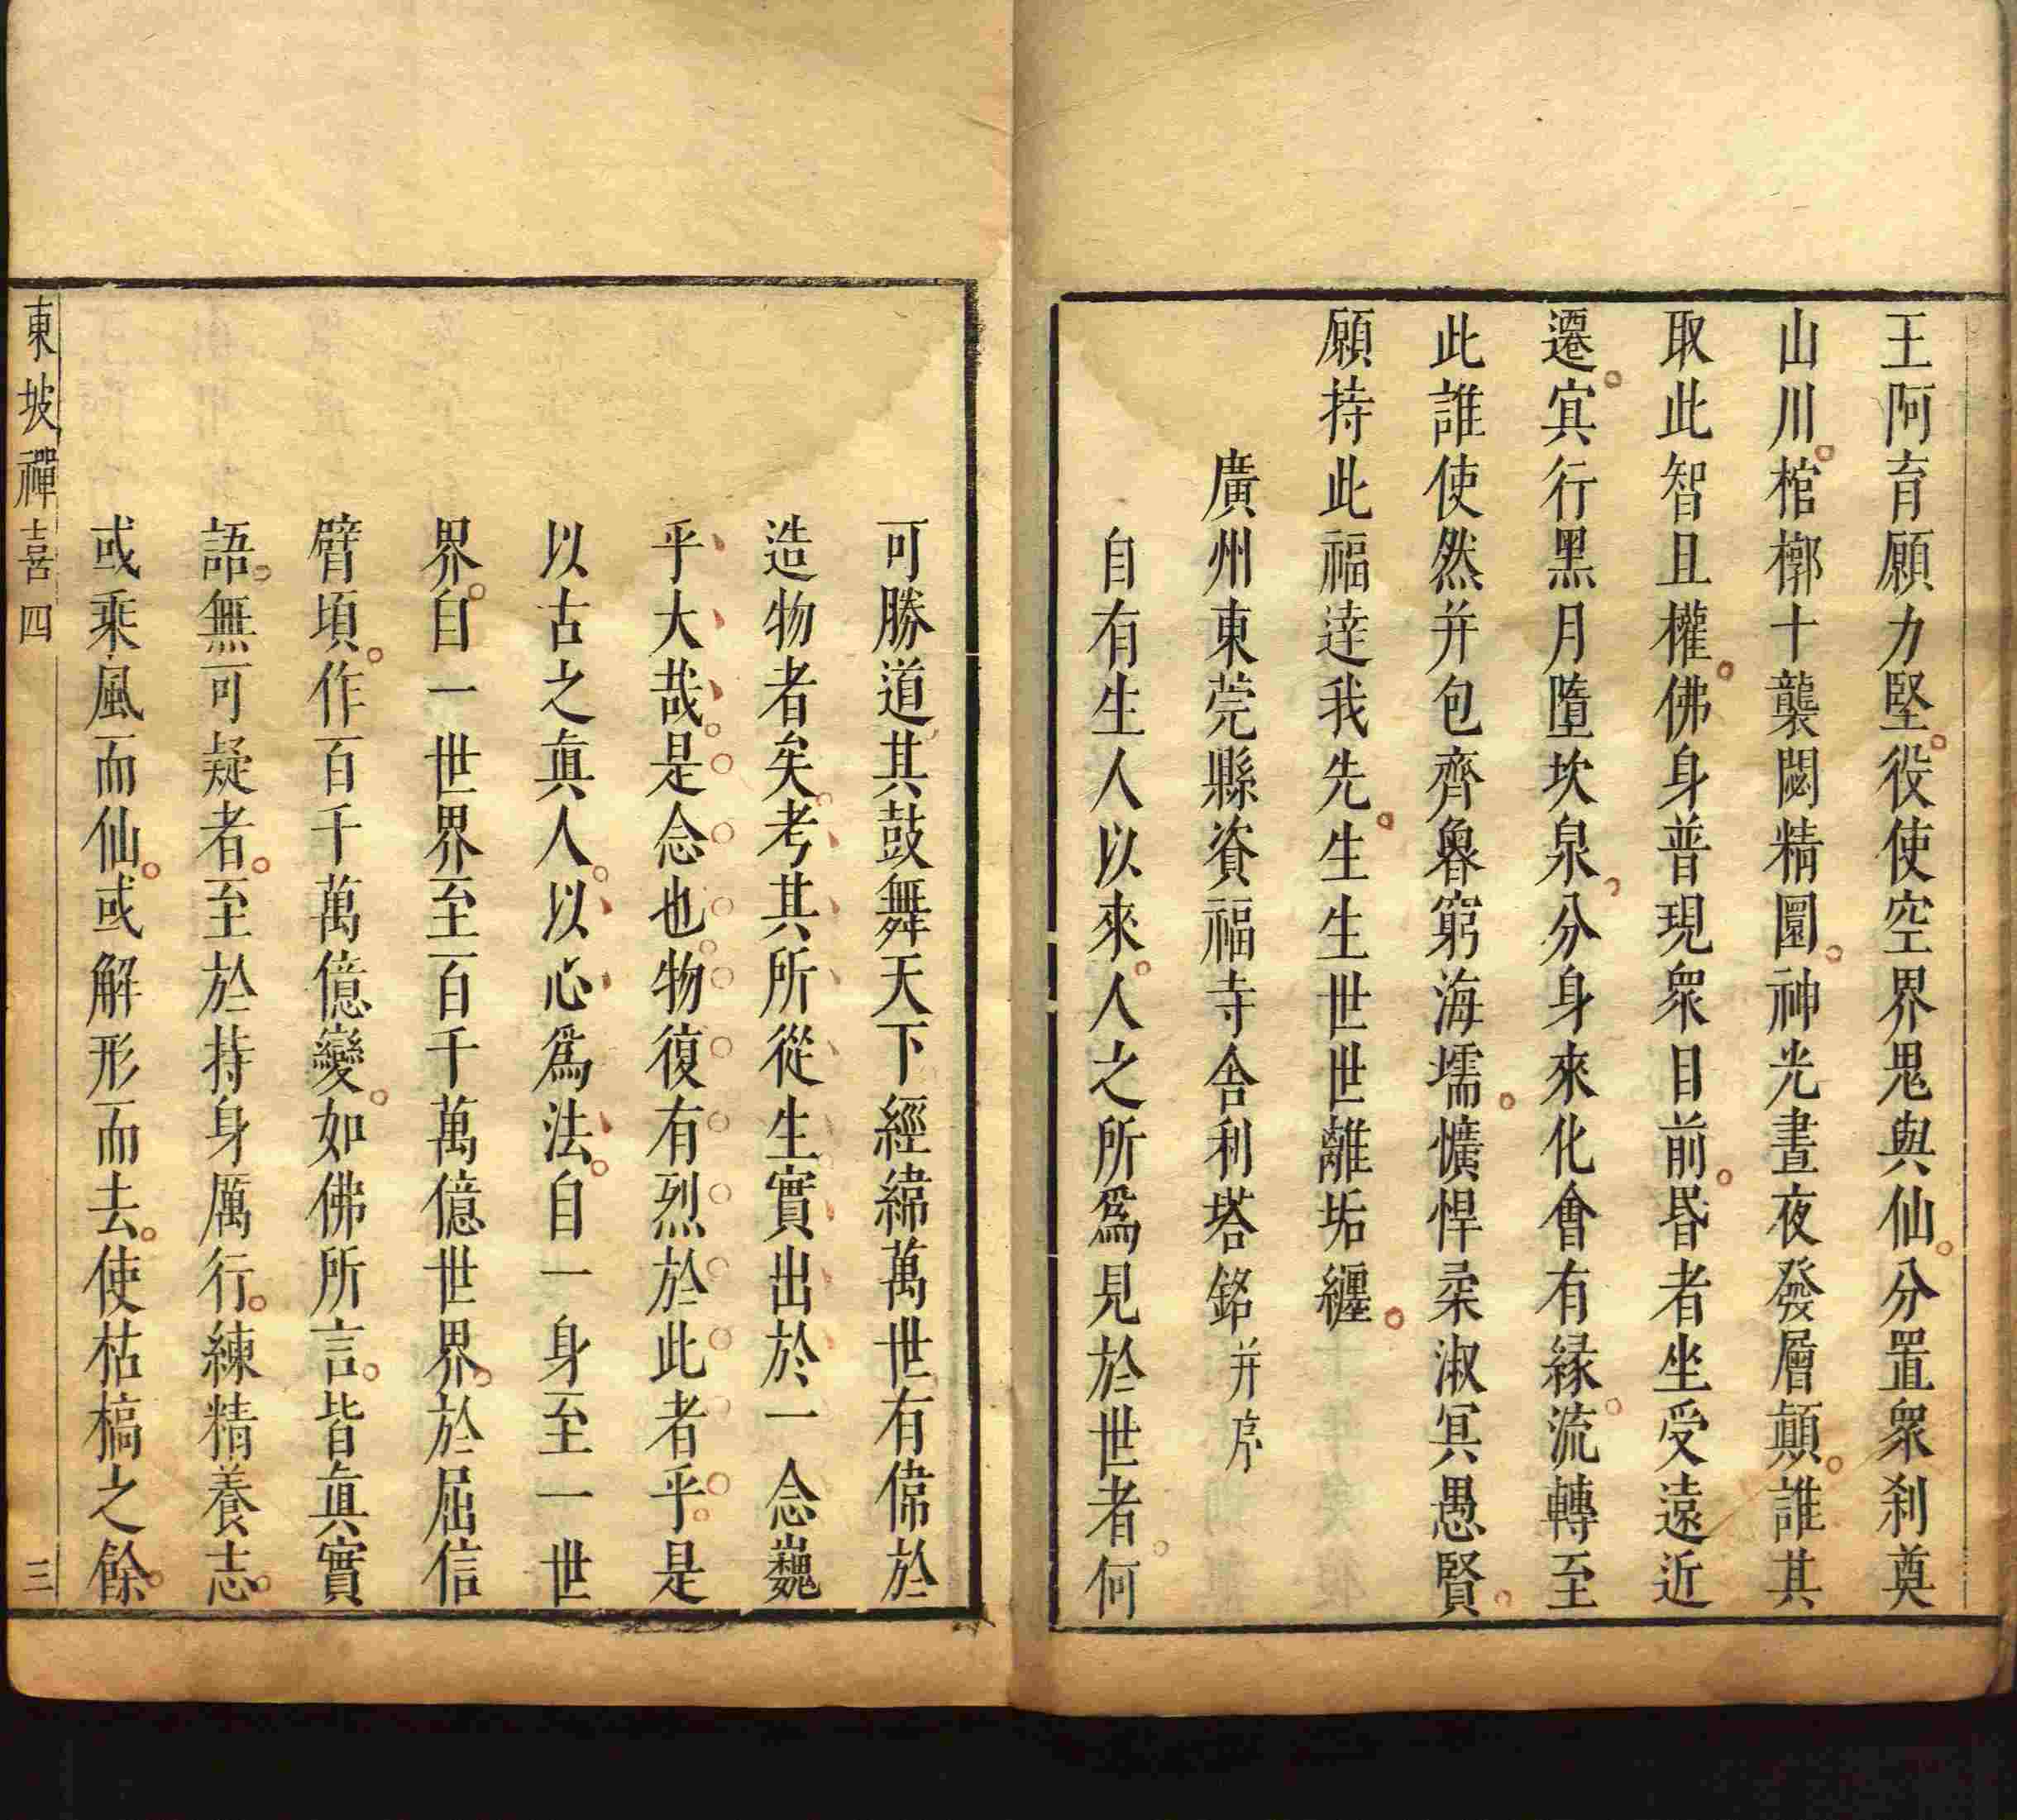 王阿育願力堅役使空界鬼與仙分置衆刹奠
山川棺槨十襲閟精圜神光晝夜發層顛誰其
取此智且權佛身普現衆目前昏者坐受遠近
遷冥行黑月墮坎泉分身來化會有緣流轉至
此誰使然并包齊魯窮海壖獷悍柔淑冥愚賢
願持此福達我先生生世世離垢纏
廣州東莞縣資福寺舍利塔銘并序
自有生人以來人之所爲見於世者何
可勝道其鼓舞天下經緯萬世有偉於
造物者矣考其所從生實出於一念巍
乎大哉是念也物復有烈於此者乎是
以古之眞人以心爲法自一身至一世
界自一世界至百千萬億世界於屈信
臂頃作百千萬億變如佛所言皆眞實
語無可疑者至於持身厲行練精養志
或乘風而仙或解形而去使枯槁之餘
東坡禪喜四 三